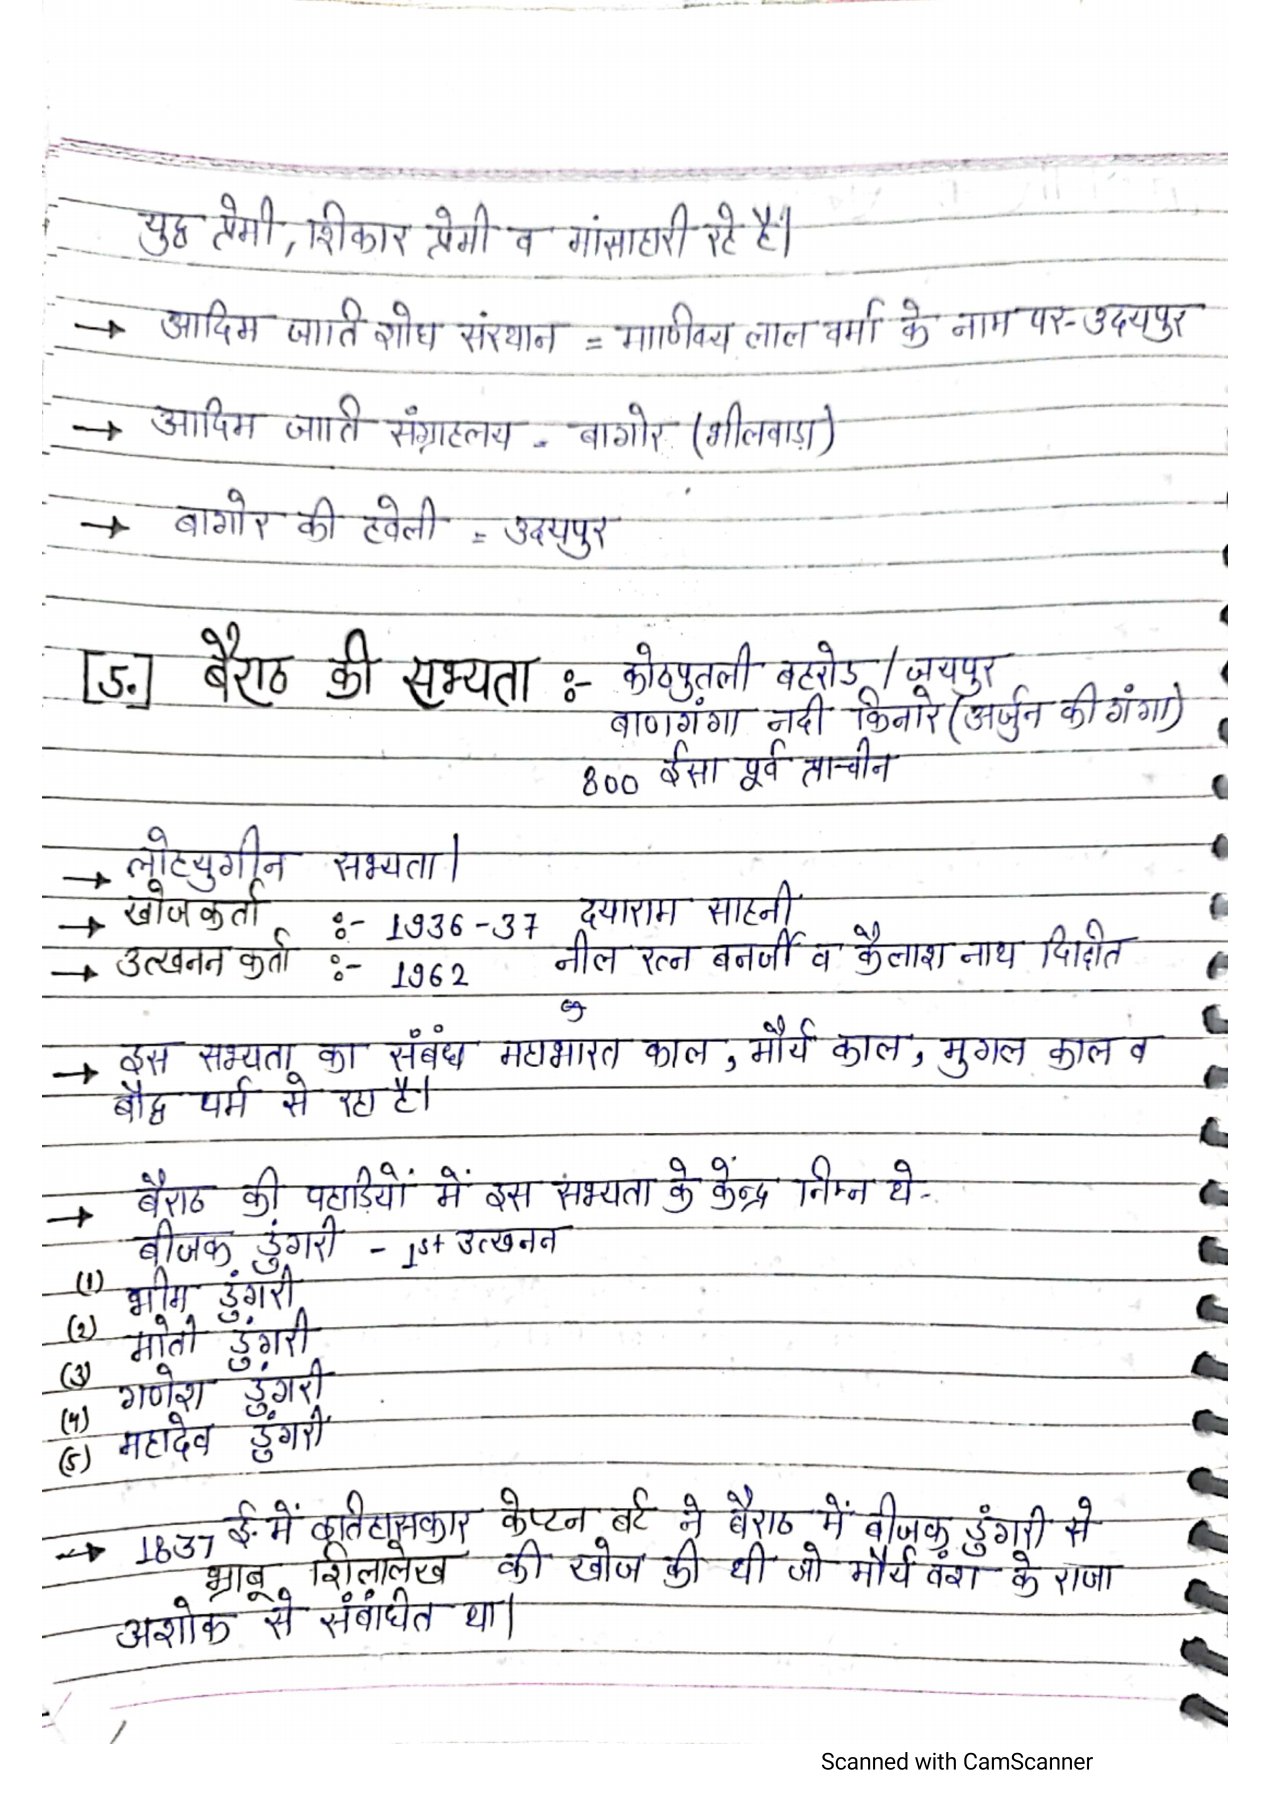 युद्ध प्रेमी, शिकार प्रेमी व मांसाहारी रहे है।
→ आदिम जाति शोध संस्थान = माणिक्य लाल वर्मा के नाम पर-उदयपुर
→ आदिम जाति संग्राहलय - बागोर (भीलवाड़ा)
→ बागोर की हवेली = उदयपुर
[5.] बैराठ की सभ्यता :- कोठपुतली बहरोड / जयपुर
बाणगंगा नदी किनारे (अर्जुन की गंगा)
800 ईसा पूर्व प्राचीन
→ लोहयुगीन सभ्यता।
→ खोजकर्ता :- 1936-37 दयाराम साहनी
→ उत्खनन कर्ता :- 1962 नील रत्न बनर्जी व कैलाश नाथ दिक्षित
→ इस सभ्यता का संबंध महाभारत काल, मौर्य काल, मुगल काल व
बौद्ध धर्म से रहा है।
→ बैराठ की पहाड़ियों में इस सभ्यता के केंन्द्र निम्न थे-
बीजक डुंगरी - 1st उत्खनन
(1) भीम डुंगरी
(2) मोती डुंगरी
(3) गणेश डुंगरी
(4) महादेव डुंगरी
(5)
→ 1837 ई. में इतिहासकार केप्टन बर्ट ने बैराठ में बीजक डुंगरी से
भाब्रू शिलालेख की खोज की थी जो मौर्य वंश के राजा
अशोक से संबंधित था।
Scanned with CamScanner